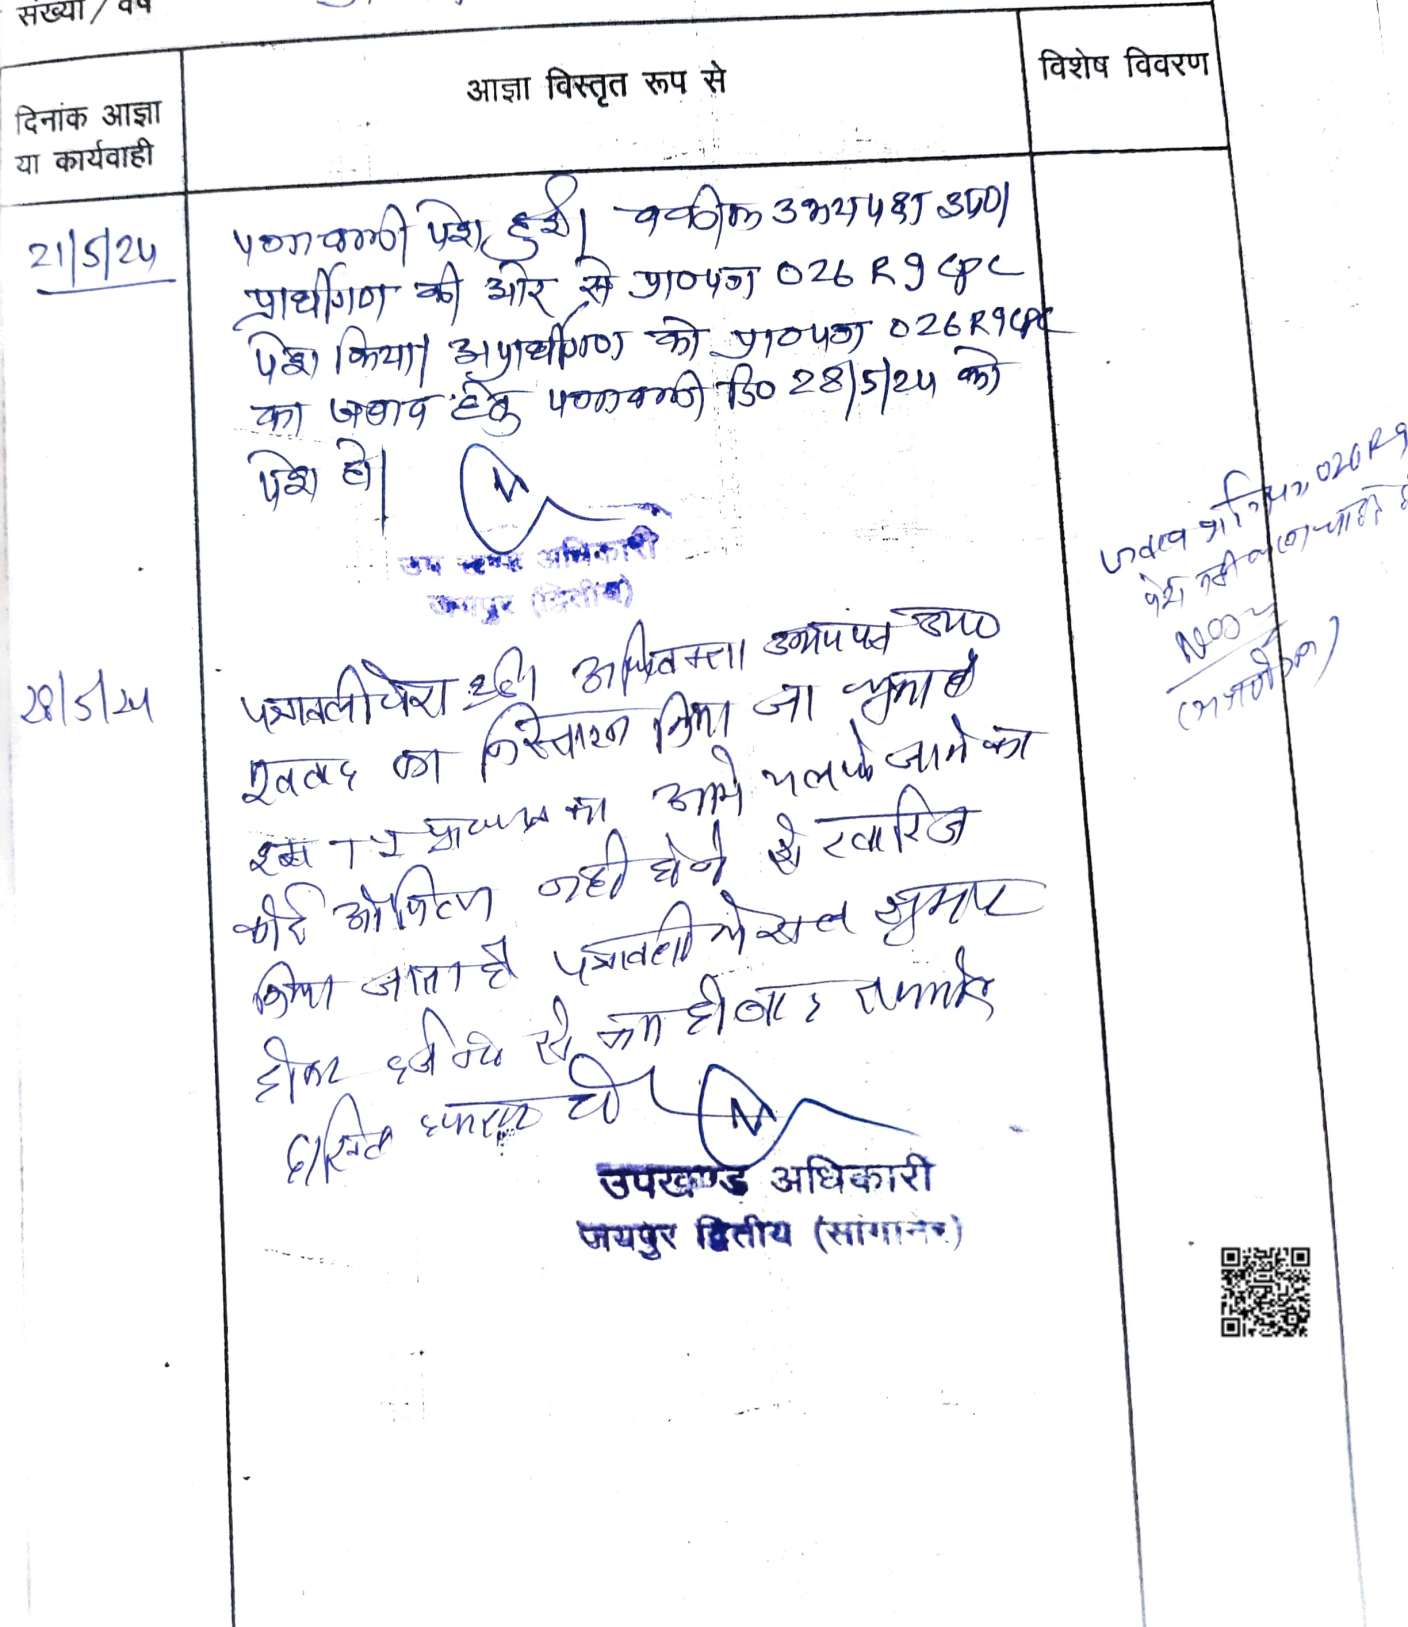 संख्या / वर्ष
दिनांक आज्ञा
या कार्यवाही
आज्ञा विस्तृत रूप से
विशेष विवरण
21/5/24
पत्रावली पेश हुई। वकील उभयपक्ष उप0।
प्रार्थीगण की ओर से प्रा0पत्र O26 R9 CPC
पेश किया। अप्रार्थीगण को प्रा0पत्र O26R9CPC
का जवाब हेतु पत्रावली दि0 28/5/24 को
पेश हो।
उप खण्ड अधिकारी
जयपुर (द्वितीय)
28/5/24
पत्रावली पेश हुई। अधिवक्ता उभयपक्ष उप0
का निस्तारण किया जा चुका है
का आगे चलाये जाने का
कोई औचित्य नहीं होने से खारिज
किया जाता है पत्रावली फैसल शुमार
होकर दर्ज नं0 से कम हो बाद तकमील
दाखिल दफ्तर हो
उपखण्ड अधिकारी
जयपुर द्वितीय (सांगानेर)
जवाब O26 R9
पेश नहीं करना चाहते